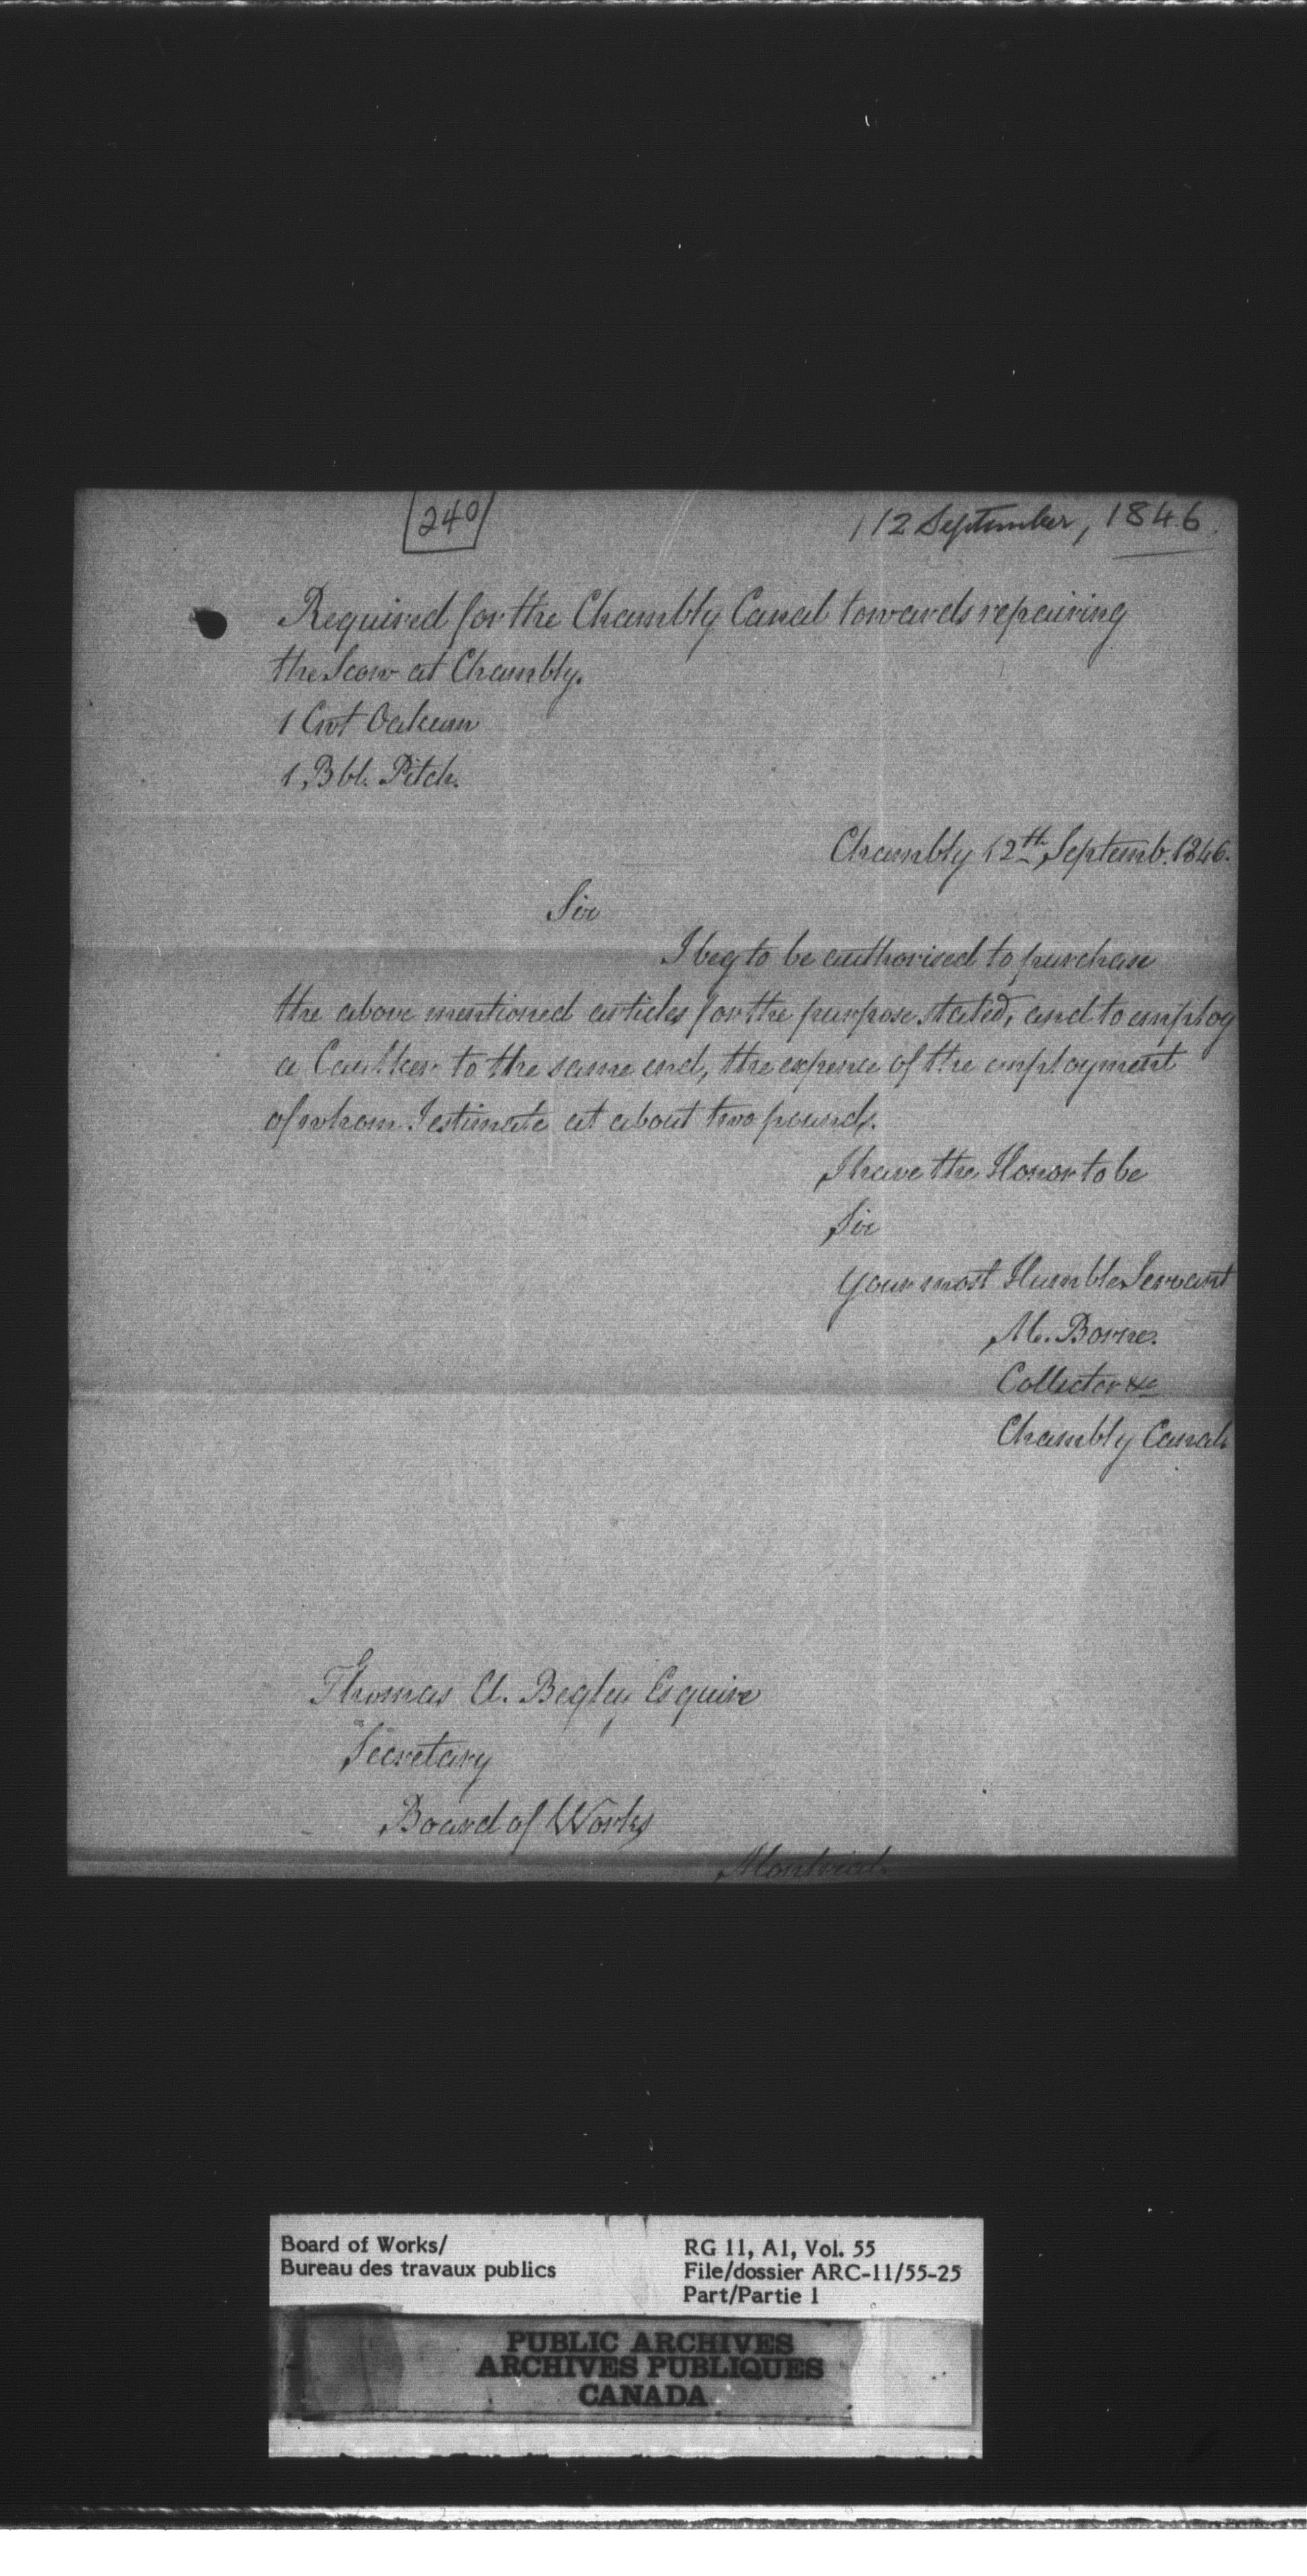 240
12 September, 1846.
Required for the Chambly Canal towards repairing
the Scow at Chambly.
1 Cwt Oakum
1 Bbl. Pitch.
Chambly 12th Septemb. 1846.
Sir
I beg to be authorised to purchase
the above mentioned articles for the purpose stated, and to employ
a Caulker to the same end, the expence of the employment
of whom I estimate at about two pounds.
I have the Honor to be
Sir
Your most Humble Servant
M. Borne.
Collector &c
Chambly Canal.
Thomas A. Begley Esquire
Secretary
Board of Works
Montreal.
Board of Works/
Bureau des travaux publics
RG 11, A1, Vol. 55
File/dossier ARC-11/55-25
Part/Partie 1
PUBLIC ARCHIVES
ARCHIVES PUBLIQUES
CANADA